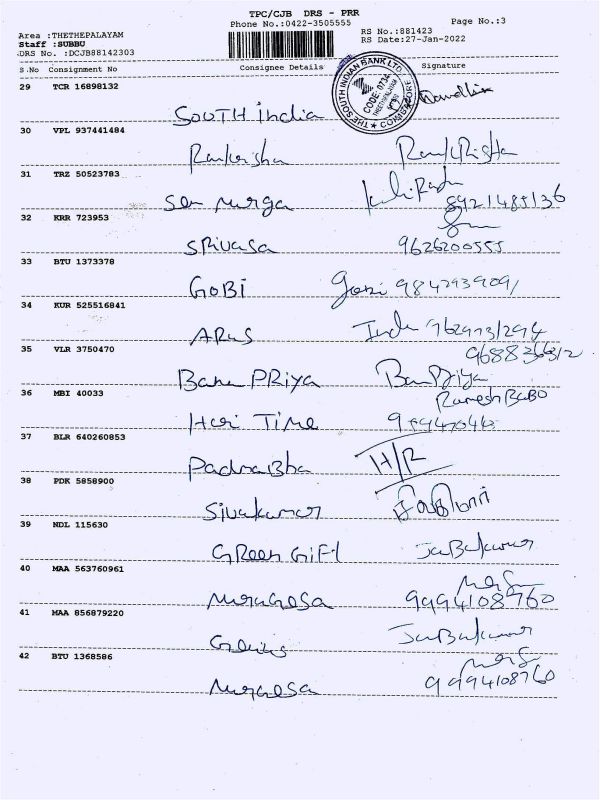 TPC/CJB DRS - PRR
Phone No.:0422-3505555
Page No.:3
Area :THETHEPALAYAM
Staff :SUBBU
DRS No. :DCJB88142303
RS No.:881423
RS Date:27-Jan-2022
S.No Consignment No Consignee Details Signature
THE SOUTH INDIAN BANK LTD. COIMBATORE
CODE: 0734
29 TCR 16898132
South india
30 VPL 937441484
Ramkrisha RamKRisha
31 TRZ 50523783
Sen Murga
8921485136
32 KRR 723953
SRivasa 9626200555
33 BTU 1373378
GOBI Gopi 9842939091
34 KUR 525516841
ARUS
35 VLR 3750470
Banu PRiya BanuPriya
36 MBI 40033
Ramesh BABO
Hari Time
37 BLR 640260853
PadmaBha H/R
38 PDK 5858900
Sivakumar சிவகுமார்
39 NDL 115630
GReen GiFt JaBakumar
40 MAA 563760961
Murugesa 9994108760
41 MAA 856879220
JaBakumar
42 BTU 1368586
Murugesa 9994108760